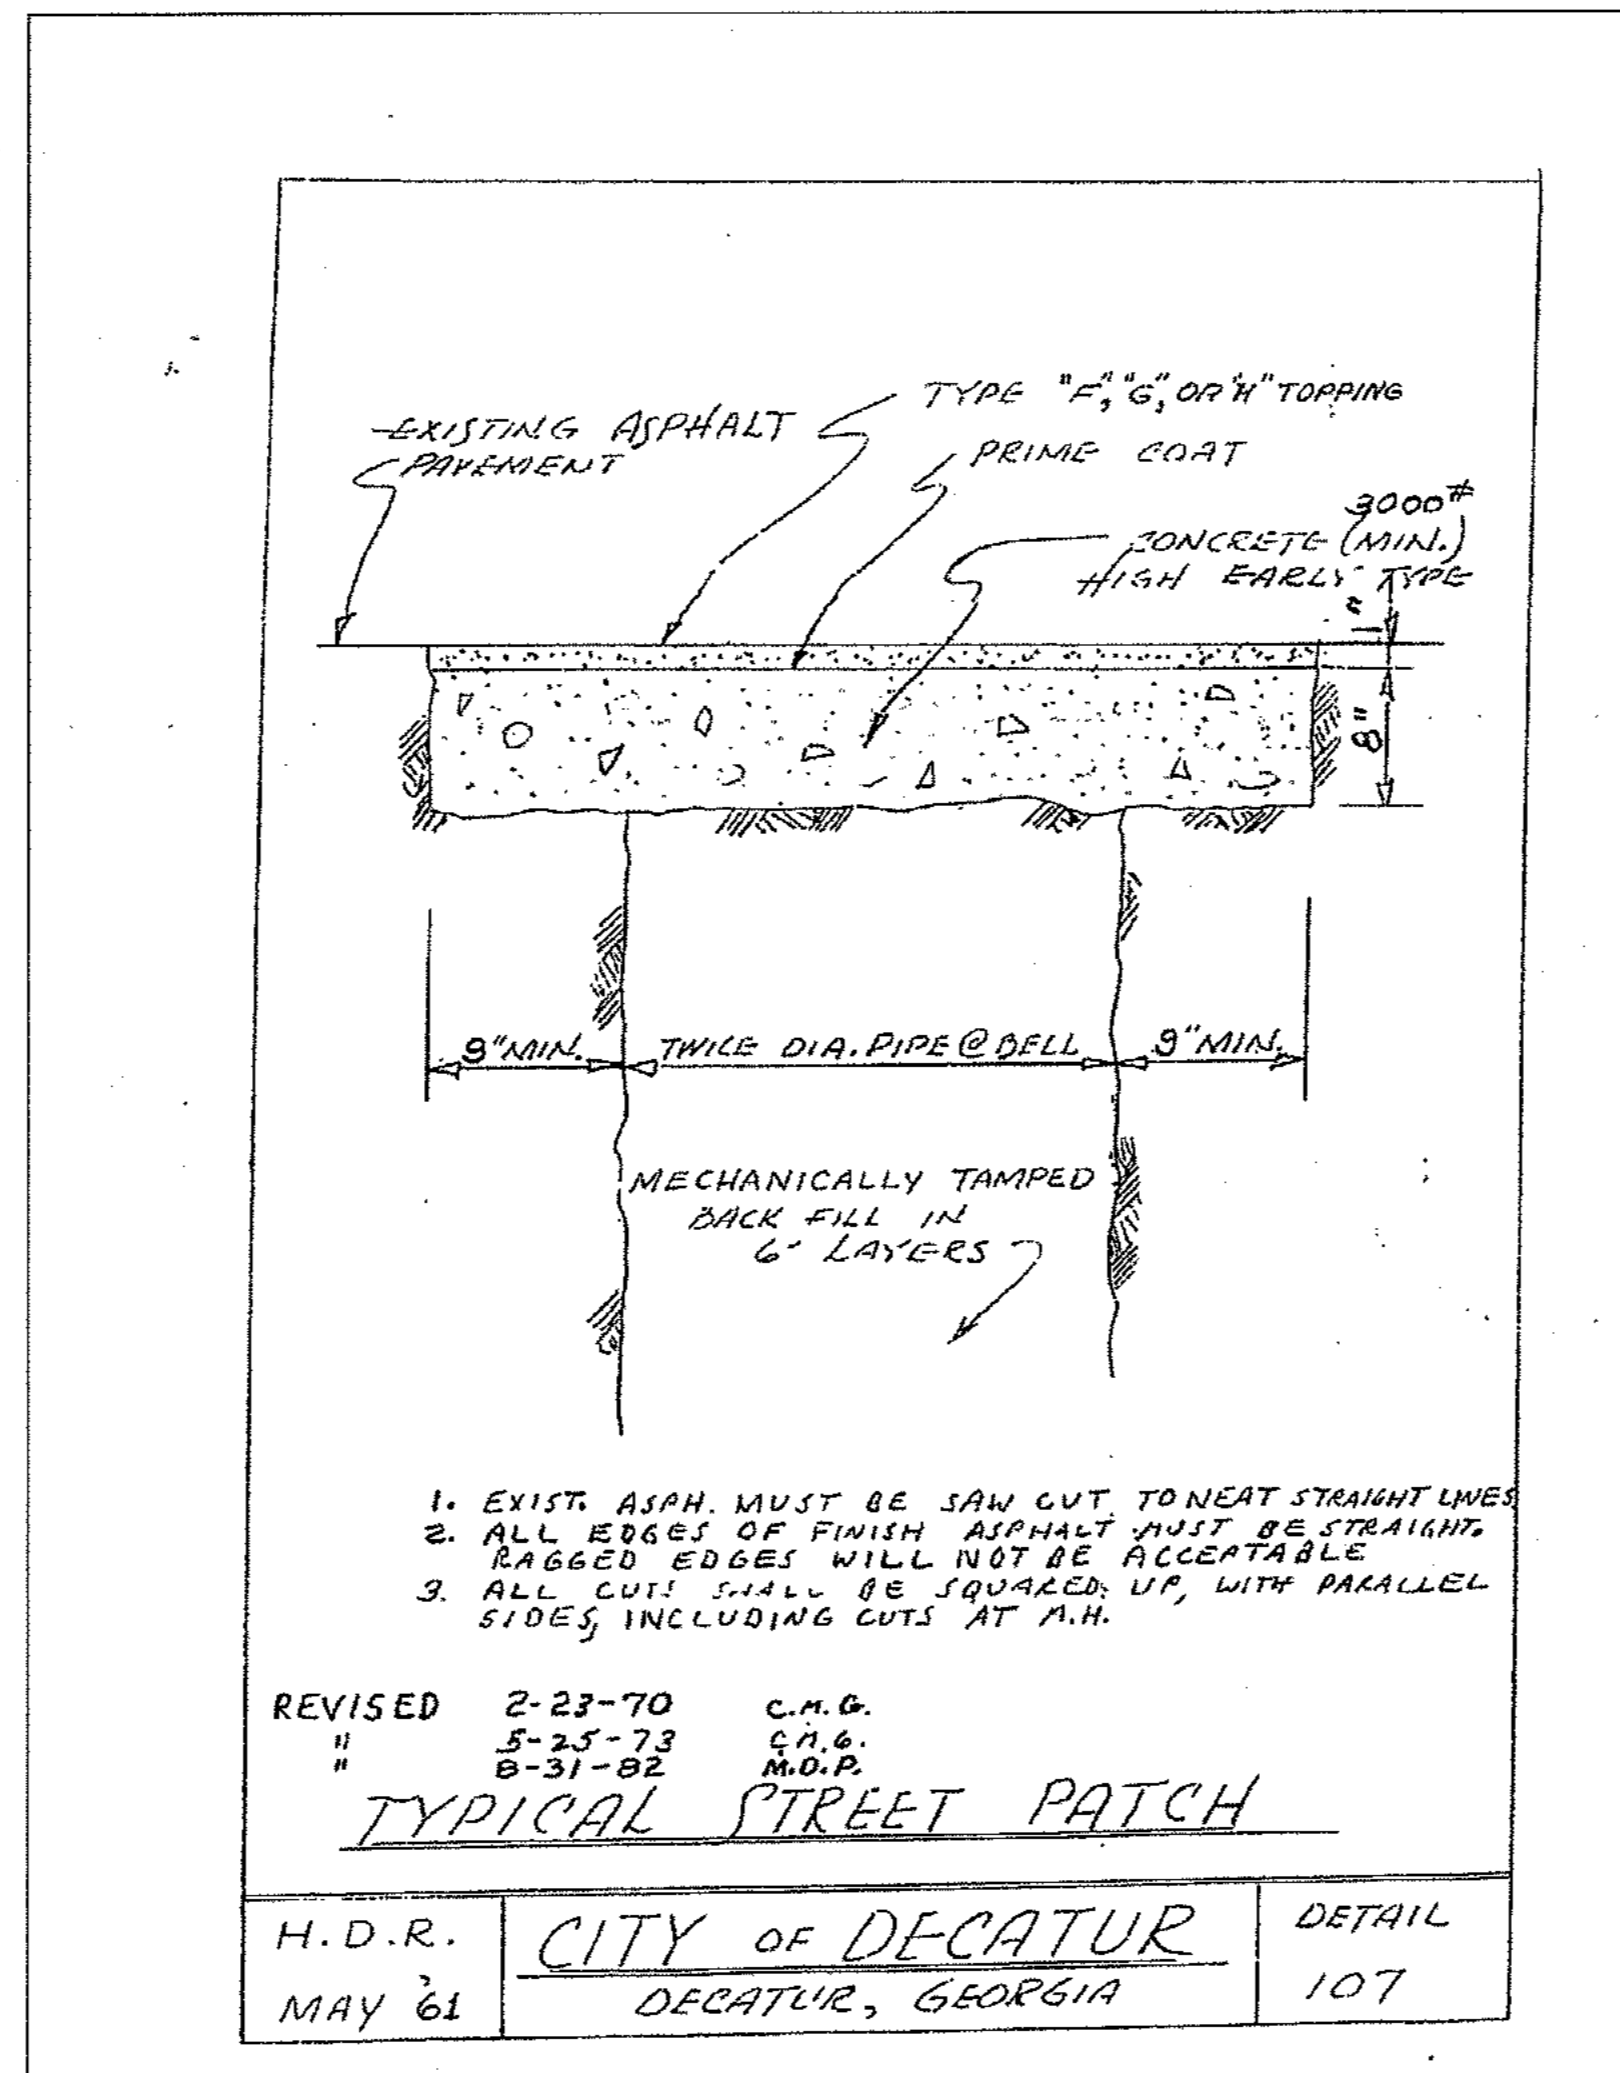 TYPE "F", "G", OR "H" TOPPING
EXISTING ASPHALT
PAVEMENT
PRIME COAT
3000#
CONCRETE (MIN.)
HIGH EARLY TYPE
1"
8"
9" MIN.
TWICE DIA. PIPE @ BELL
9" MIN.
MECHANICALLY TAMPED
BACK FILL IN
6" LAYERS
1. EXIST. ASPH. MUST BE SAW CUT TO NEAT STRAIGHT LINES
2. ALL EDGES OF FINISH ASPHALT MUST BE STRAIGHT.
RAGGED EDGES WILL NOT BE ACCEPTABLE
3. ALL CUTS SHALL BE SQUARED UP, WITH PARALLEL
SIDES, INCLUDING CUTS AT M.H.
REVISED 2-23-70 C.M.G.
" 5-25-73 C.M.G.
" 8-31-82 M.D.P.
TYPICAL STREET PATCH
H.D.R.
MAY '61
CITY OF DECATUR
DECATUR, GEORGIA
DETAIL
107